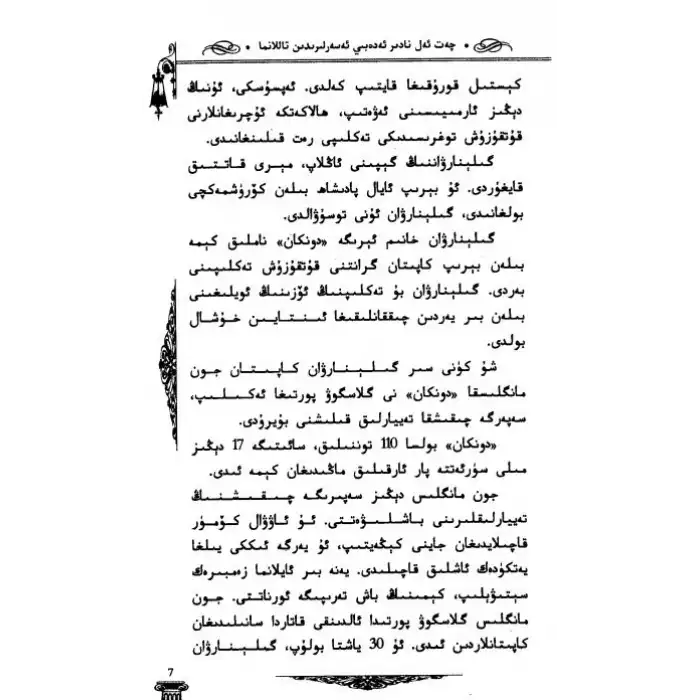 چەت ئەل نادىر ئەدەبىي ئەسەرلىرىدىن تاللانما
كېستىل قورۇقىغا قايتىپ كەلدى. ئەپسۇسكى، ئۇنىڭ
دېڭىز ئارمىيىسىنى ئەۋەتىپ، ھالاكەتكە ئۇچرىغانلارنى
قۇتقۇزۇش توغرىسىدىكى تەكلىپى رەت قىلىنغانىدى.
گىلېنارۋاننىڭ گېپىنى ئاڭلاپ، مېرى قاتتىق
قايغۇردى. ئۇ بېرىپ ئايال پادىشاھ بىلەن كۆرۈشمەكچى
بولغانىدى، گىلېنارۋان ئۇنى توسۇۋالدى.
گىلېنارۋان خانىم ئېرىگە «دونكان» ناملىق كېمە
بىلەن بېرىپ كاپىتان گرانتنى قۇتقۇزۇش تەكلىپىنى
بەردى. گىلېنارۋان بۇ تەكلىپنىڭ ئۆزىنىڭ ئويلىغىنى
بىلەن بىر يەردىن چىققانلىقىغا ئىنتايىن خۇشال
بولدى.
شۇ كۈنى سىر گىلېنارۋان كاپىتان جون
مانگلىسقا «دونكان» نى گلاسگوۋ پورتىغا ئەكىلىپ،
سەپەرگە چىقىشقا تەييارلىق قىلىشنى بۇيرۇدى.
«دونكان» بولسا 110 توننىلىق، سائىتىگە 17 دېڭىز
مىلى سۈرئەتتە پار ئارقىلىق ماڭىدىغان كېمە ئىدى.
جون مانگلىس دېڭىز سەپىرىگە چىقىشنىڭ
تەييارلىقلىرىنى باشلىۋەتتى. ئۇ ئاۋۋال كۆمۈر
قاچىلايدىغان جاينى كېڭەيتىپ، ئۇ يەرگە ئىككى يىلغا
يەتكۈدەك ئاشلىق قاچىلىدى. يەنە بىر ئايلانما زەمبىرەك
سېتىۋېلىپ، كېمىنىڭ باش تەرىپىگە ئورناتتى. جون
مانگلىس گلاسگوۋ پورتىدا ئالدىنقى قاتاردا سانىلىدىغان
كاپىتانلاردىن ئىدى. ئۇ 30 ياشتا بولۇپ، گىلېنارۋان
7